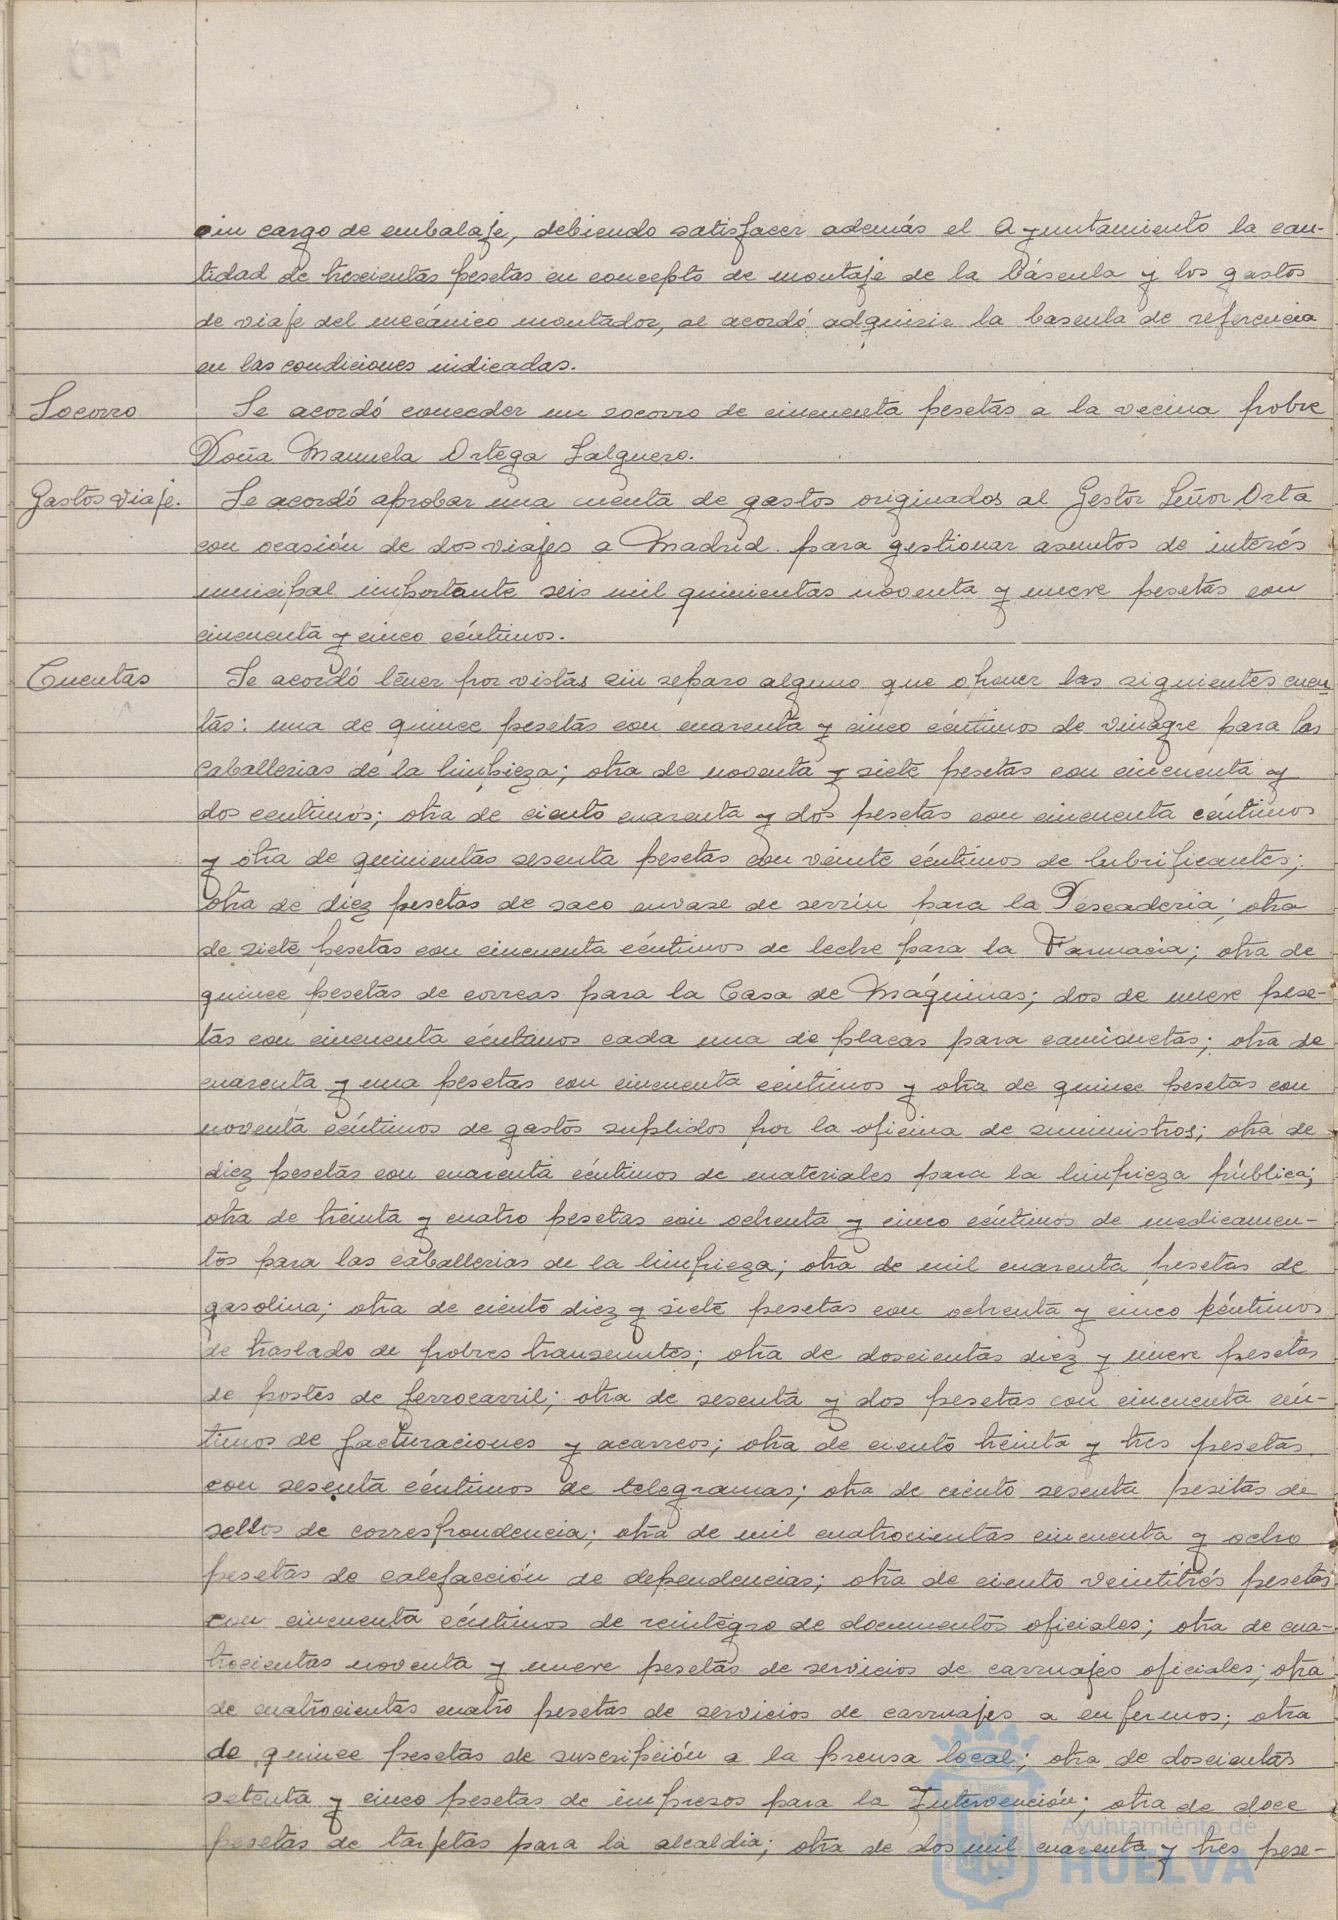 sin cargo de embalaje, debiendo satisfacer además el Ayuntamiento la can-
tidad de trescientas pesetas en concepto de montaje de la báscula y los gastos
de viaje del mecánico montador, se acordó adquirir la bascula de referencia
en las condiciones indicadas.
Socorro
Se acordó conceder un socorro de cincuenta pesetas a la vecina pobre
Doña Manuela Ortega Salguero.
Gastos viaje.
Se acordó aprobar una cuenta de gastos originados al Gestor Señor Orta
con ocasión de dos viajes a Madrid para gestionar asuntos de interés
municipal importante seis mil quinientas noventa y nueve pesetas con
cincuenta y cinco céntimos.
Cuentas
Se acordó tener por vistas sin reparo alguno que oponer las siguientes cuen-
tas: una de quince pesetas con cuarenta y cinco céntimos de vinagre para las
caballerias de la limpieza; otra de noventa y siete pesetas con cincuenta y
dos centimos; otra de ciento cuarenta y dos pesetas con cincuenta céntimos
y otra de quinientas sesenta pesetas con veinte céntimos de lubrificantes;
otra de diez pesetas de saco envase de serrin para la Pescaderia; otra
de siete pesetas con cincuenta céntimos de leche para la Farmacia; otra de
quince pesetas de correas para la Casa de Máquinas; dos de nueve pese-
tas con cincuenta céntimos cada una de placas para camionetas; otra de
cuarenta y una pesetas con cincuenta céntimos y otra de quince pesetas con
noventa céntimos de gastos suplidos por la oficina de suministros; otra de
diez pesetas con cuarenta céntimos de materiales para la limpieza pública;
otra de treinta y cuatro pesetas con ochenta y cinco céntimos de medicamen-
tos para las caballerias de la limpieza; otra de mil cuarenta pesetas de
gasolina; otra de ciento diez y siete pesetas con ochenta y cinco céntimos
de traslado de pobres transeuntes; otra de doscientas diez y nueve pesetas
de portes de ferrocarril; otra de sesenta y dos pesetas con cincuenta cén-
timos de facturaciones y acarreos; otra de ciento treinta y tres pesetas
con sesenta céntimos de telegramas; otra de ciento sesenta pesetas de
sellos de correspondencia; otra de mil cuatrocientas cincuenta y ocho
pesetas de calefacción de dependencias; otra de ciento veintitrés pesetas
con cincuenta céntimos de reintegro de documentos oficiales; otra de cua-
trocientas noventa y nueve pesetas de servicios de carruajes oficiales; otra
de cuatrocientas cuatro pesetas de servicios de carruajes a enfermos; otra
de quince pesetas de suscripción a la prensa local; otra de doscientas
setenta y cinco pesetas de impresos para la Intervención; otra de doce
pesetas de tarjetas para la alcaldia; otra de dos mil cuarenta y tres pese-
Ayuntamiento de
HUELVA